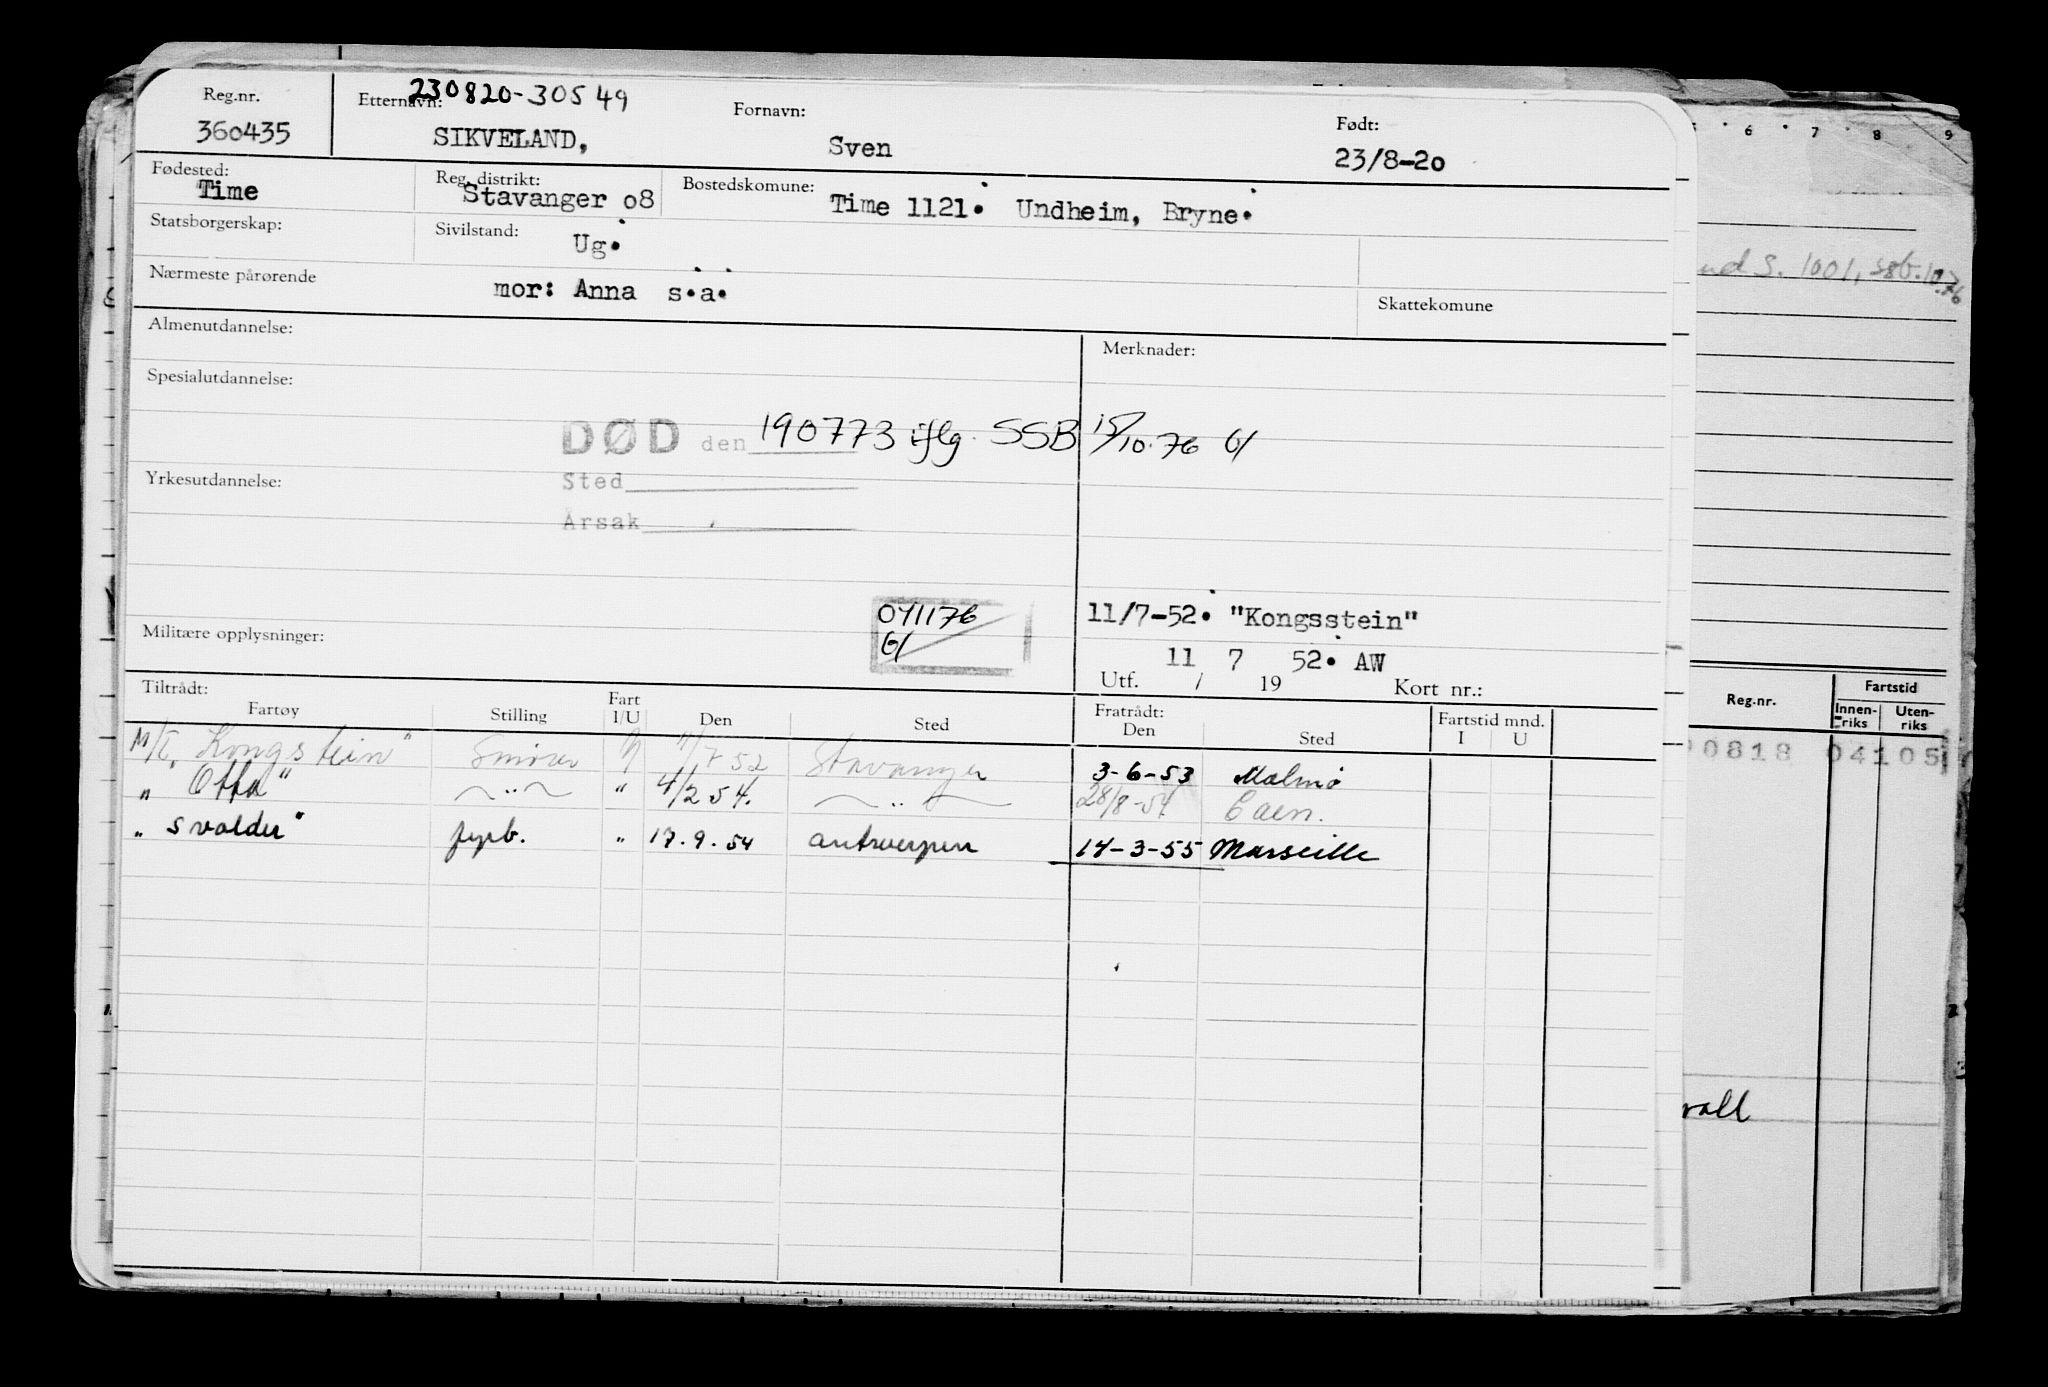 Reg.nr. 230820-30549
Etternavn: Fornavn: Født:
360435 SIKVELAND, Sven 23/8-20
Fødested: Reg. distrikt: Bostedskomune:
Time Stavanger o8 Time 1121. Undheim, Bryne.
Statsborgerskap: Sivilstand: Ug.
Nærmeste pårørende mor: Anna s.a. Skattekomune
Almenutdannelse: Merknader:
Spesialutdannelse:
DØD den 190773 iflg. SSB 15/10.76
Yrkesutdannelse: Sted
Årsak
041176
11/7-52. "Kongsstein"
Militære opplysninger: 11 7 52. AW
Utf. / 19 Kort nr.:
Tiltrådt: Fratrådt:
Fartøy Stilling Fart I/U Den Sted Den Sted Fartstid mnd. I U
M/T "Kongstein" Smører U 11/7 52 Stavanger 3-6-53 Malmø
" Otta" " " 4/2 54. " 28/8-54 Caen.
" Svolder" fyrb. " 17.9.54 Antwerpen 14-3-55 Marseille
5 6 7 8 9
S. 1001, SSB.
Reg.nr. Fartstid
Innen-riks Uten-riks
0818 04105
vall